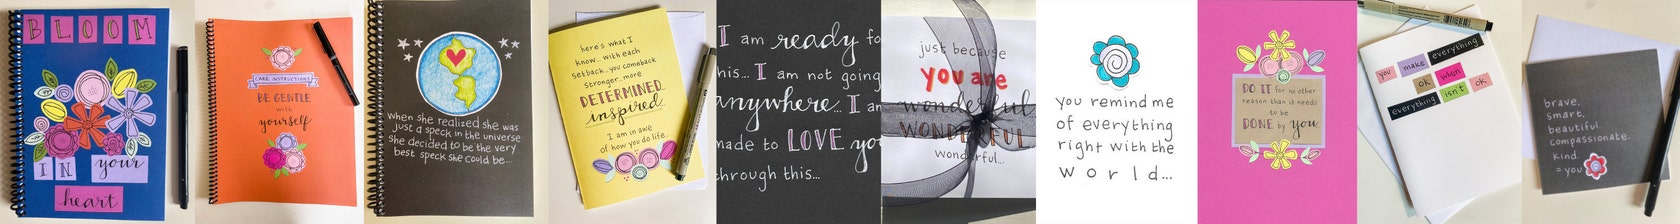 BLOOM
IN your
heart
CARE INSTRUCTIONS
BE GENTLE
with
yourself
when she realized she was
just a speck in the universe
she decided to be the very
best speck she could be...
here's what I
know... with each
setback... you comeback
stronger... more
DETERMINED
inspired
I am in awe
of how you do life...
I am ready fo
his... I am not going
anywhere.. I am
made to LOVE you
through this...
just because
you are
wonderful
WONDERFUL
wonderful...
you remind me
of everything
right with the
world...
DO IT for no other
reason than it needs
to be
DONE by you
you make everything
ok when
everything isn't ok.
brave.
smart.
beautiful.
compassionate.
kind.
= you